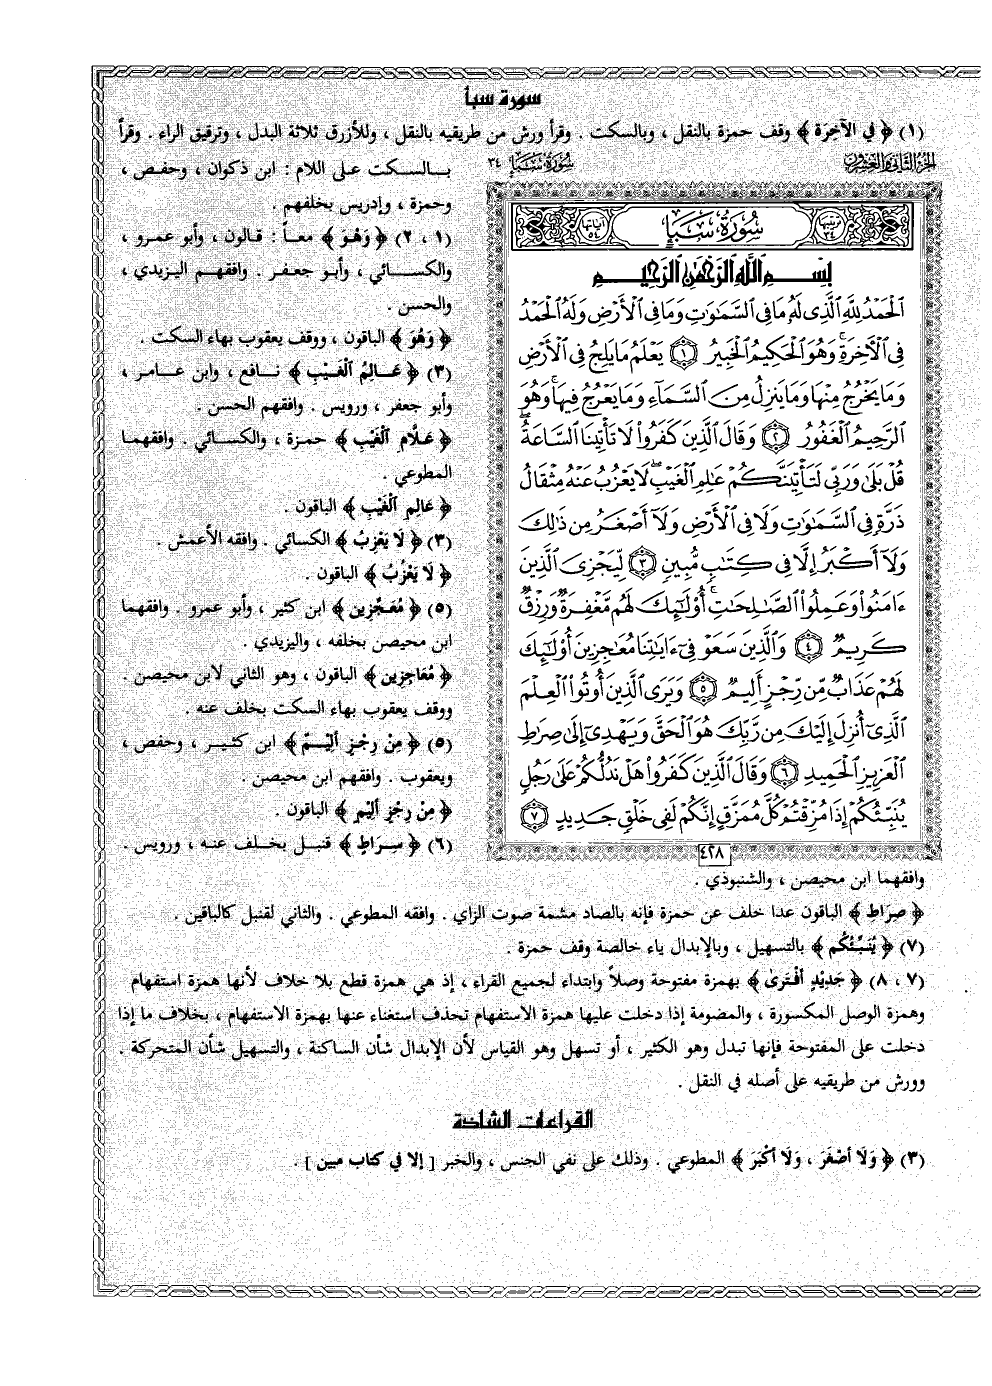 سورة سبأ
(١) ﴿ في الآخِرَة ﴾ وقف حمزة بالنقل ، وبالسكت . وقرأ ورش من طريقيه بالنقل ، وللأزرق ثلاثة البدل ، وترقيق الراء . وقرأ
الجزء الثاني والعشرون
سورة سبإ ٣٤
بالسكت على اللام : ابن ذكوان ، وحفص ،
وحمزة ، وإدريس بخلفهم .
(١ ، ٢) ﴿ وَهْوَ ﴾ معاً : قالون ، وأبو عمرو ،
والكسائي ، وأبو جعفر . وافقهم اليزيدي ،
والحسن .
﴿ وَهُوَ ﴾ الباقون ، ووقف يعقوب بهاء السكت .
(٣) ﴿ عَالِمُ الْغَيْبِ ﴾ نافع ، وابن عامر ،
وأبو جعفر ، ورويس . وافقهم الحسن .
﴿ عَلَّامِ الْغَيْبِ ﴾ حمزة ، والكسائي . وافقهما
المطوعي .
﴿ عَالِمِ الْغَيْبِ ﴾ الباقون .
(٣) ﴿ لَا يَعْزِبُ ﴾ الكسائي . وافقه الأعمش .
﴿ لَا يَعْزُبُ ﴾ الباقون .
(٥) ﴿ مُعَجِّزِين ﴾ ابن كثير ، وأبو عمرو . وافقهما
ابن محيصن بخلفه ، واليزيدي .
﴿ مُعَاجِزِين ﴾ الباقون ، وهو الثاني لابن محيصن .
ووقف يعقوب بهاء السكت بخلف عنه .
(٥) ﴿ مِنْ رِجْزٍ أَلِيمٌ ﴾ ابن كثير ، وحفص ،
ويعقوب . وافقهم ابن محيصن .
﴿ مِنْ رِجْزٍ أَلِيمٍ ﴾ الباقون .
(٦) ﴿ سِرَاطِ ﴾ قنبل بخلف عنه ، ورويس .
ترتيبها ٣٤ سُورَةُ سَبَإٍ آياتها ٥٤
بِسْمِ اللَّهِ الرَّحْمَٰنِ الرَّحِيمِ
ٱلْحَمْدُ لِلَّهِ ٱلَّذِى لَهُۥ مَا فِى ٱلسَّمَٰوَٰتِ وَمَا فِى ٱلْأَرْضِ وَلَهُ ٱلْحَمْدُ
فِى ٱلْءَاخِرَةِ ۚ وَهُوَ ٱلْحَكِيمُ ٱلْخَبِيرُ ١ يَعْلَمُ مَا يَلِجُ فِى ٱلْأَرْضِ
وَمَا يَخْرُجُ مِنْهَا وَمَا يَنزِلُ مِنَ ٱلسَّمَآءِ وَمَا يَعْرُجُ فِيهَا ۚ وَهُوَ
ٱلرَّحِيمُ ٱلْغَفُورُ ٢ وَقَالَ ٱلَّذِينَ كَفَرُوا۟ لَا تَأْتِينَا ٱلسَّاعَةُ ۖ
قُلْ بَلَىٰ وَرَبِّى لَتَأْتِيَنَّكُمْ عَٰلِمِ ٱلْغَيْبِ ۖ لَا يَعْزُبُ عَنْهُ مِثْقَالُ
ذَرَّةٍ فِى ٱلسَّمَٰوَٰتِ وَلَا فِى ٱلْأَرْضِ وَلَآ أَصْغَرُ مِن ذَٰلِكَ
وَلَآ أَكْبَرُ إِلَّا فِى كِتَٰبٍ مُّبِينٍ ٣ لِّيَجْزِىَ ٱلَّذِينَ
ءَامَنُوا۟ وَعَمِلُوا۟ ٱلصَّٰلِحَٰتِ ۚ أُو۟لَٰٓئِكَ لَهُم مَّغْفِرَةٌ وَرِزْقٌ
كَرِيمٌ ٤ وَٱلَّذِينَ سَعَوْ فِىٓ ءَايَٰتِنَا مُعَٰجِزِينَ أُو۟لَٰٓئِكَ
لَهُمْ عَذَابٌ مِّن رِّجْزٍ أَلِيمٌ ٥ وَيَرَى ٱلَّذِينَ أُوتُوا۟ ٱلْعِلْمَ
ٱلَّذِىٓ أُنزِلَ إِلَيْكَ مِن رَّبِّكَ هُوَ ٱلْحَقَّ وَيَهْدِىٓ إِلَىٰ صِرَٰطِ
ٱلْعَزِيزِ ٱلْحَمِيدِ ٦ وَقَالَ ٱلَّذِينَ كَفَرُوا۟ هَلْ نَدُلُّكُمْ عَلَىٰ رَجُلٍ
يُنَبِّئُكُمْ إِذَا مُزِّقْتُمْ كُلَّ مُمَزَّقٍ إِنَّكُمْ لَفِى خَلْقٍ جَدِيدٍ ٧
٤٢٨
وافقهما ابن محيصن ، والشنبوذي .
﴿ صِرَاطِ ﴾ الباقون عدا خلف عن حمزة فإنه بالصاد مشمة صوت الزاي . وافقه المطوعي . والثاني لقنبل كالباقين .
(٧) ﴿ يُنَبِّئُكُم ﴾ بالتسهيل ، وبالإبدال ياء خالصة وقف حمزة .
(٧ ، ٨) ﴿ جَدِيْدٍ أَفْتَرى ﴾ بهمزة مفتوحة وصلاً وابتداء لجميع القراء ، إذ هي همزة قطع بلا خلاف لأنها همزة استفهام
وهمزة الوصل المكسورة ، والمضمومة إذا دخلت عليها همزة الاستفهام تحذف استغناء عنها بهمزة الاستفهام ، بخلاف ما إذا
دخلت على المفتوحة فإنها تبدل وهو الكثير ، أو تسهل وهو القياس لأن الإبدال شأن الساكنة ، والتسهيل شأن المتحركة .
وورش من طريقيه على أصله في النقل .
القراءات الشاذة
(٣) ﴿ وَلَا أَصْغَرَ ، وَلَا أَكْبَرَ ﴾ المطوعي . وذلك على نفي الجنس ، والخبر [ إلا في كتاب مبين ] .